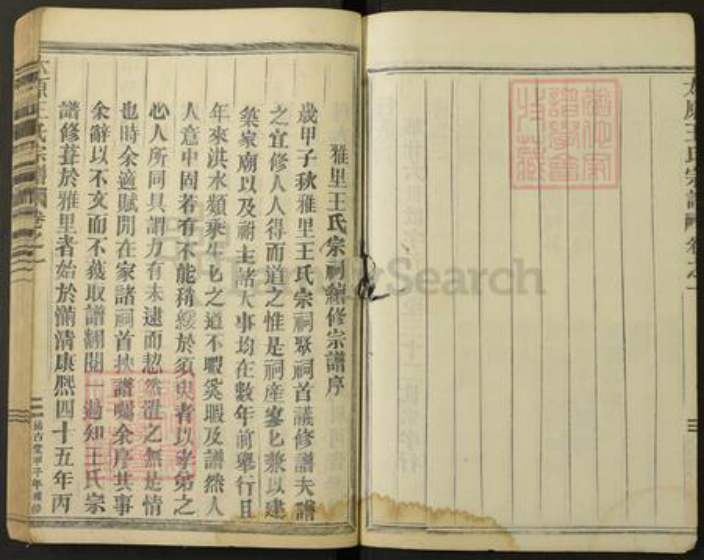 雅里王氏宗祠續修宗譜序
歲甲子秋雅里王氏宗祠眾祠首議修譜夫譜
之宜修人人得而道之惟是祠產寥匕兼以建
築家廟以及祔主諸大事均在數年前舉行且
年來洪水頻乘生匕之道不暇奚暇及譜然人
人意中固若有不能稍緩於須臾者以孝弟之
心人所同具謂力有未逮而恝然置之無是情
也時余適賦閒在家諸祠首挾譜囑余序其事
余辭以不文而不獲取譜繙閱一過知王氏宗
譜修葺於雅里者始於前清康熙四十五年丙
太原王氏宗譜
卷之一
太原王氏宗譜
卷之一
FamilySearch